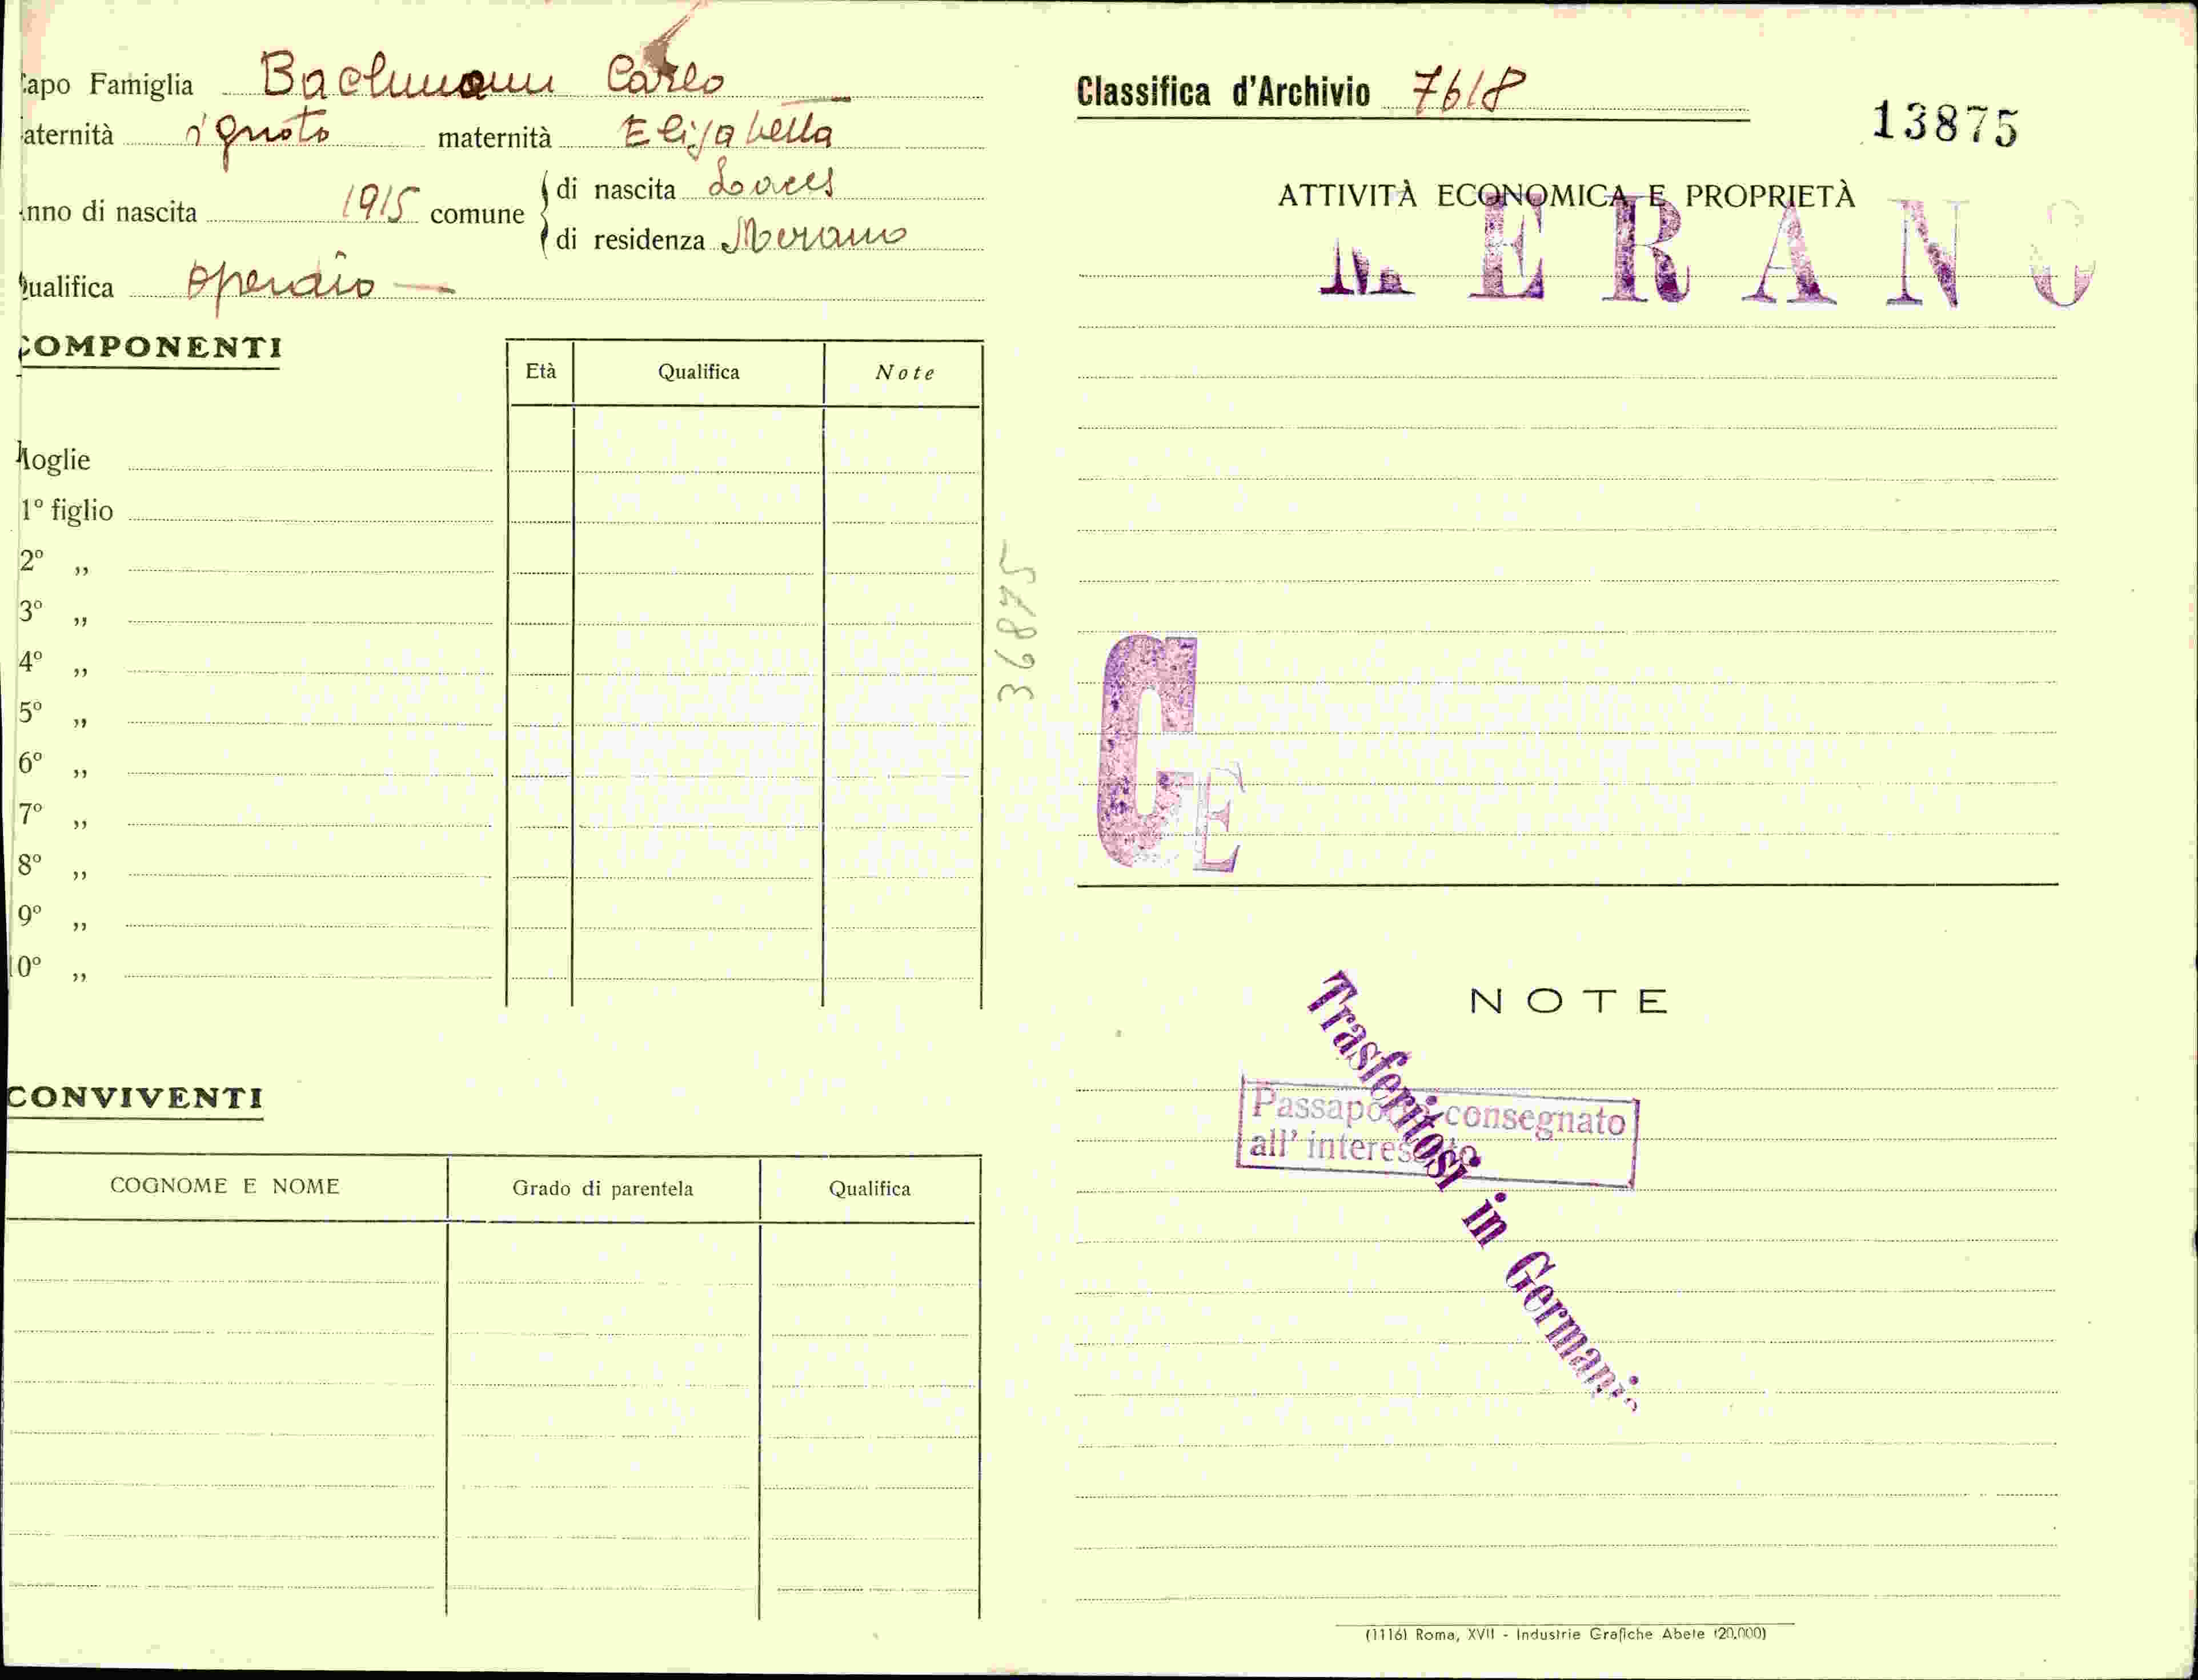 Capo Famiglia Bachmann Carlo
Paternità ignoto maternità Elisabetta
Anno di nascita 1915 comune di nascita Laces
di residenza Merano
Qualifica operaio
COMPONENTI
Età Qualifica Note
Moglie
1º figlio
2º „
3º „
4º „
5º „
6º „
7º „
8º „
9º „
10º „
36875
CONVIVENTI
COGNOME E NOME Grado di parentela Qualifica
Classifica d'Archivio 7618
13875
ATTIVITÀ ECONOMICA E PROPRIETÀ
MERANO
G
E
NOTE
Trasferitosi in Germania
Passaporto consegnato
all' interessato
(1116) Roma, XVII - Industrie Grafiche Abete (20.000)